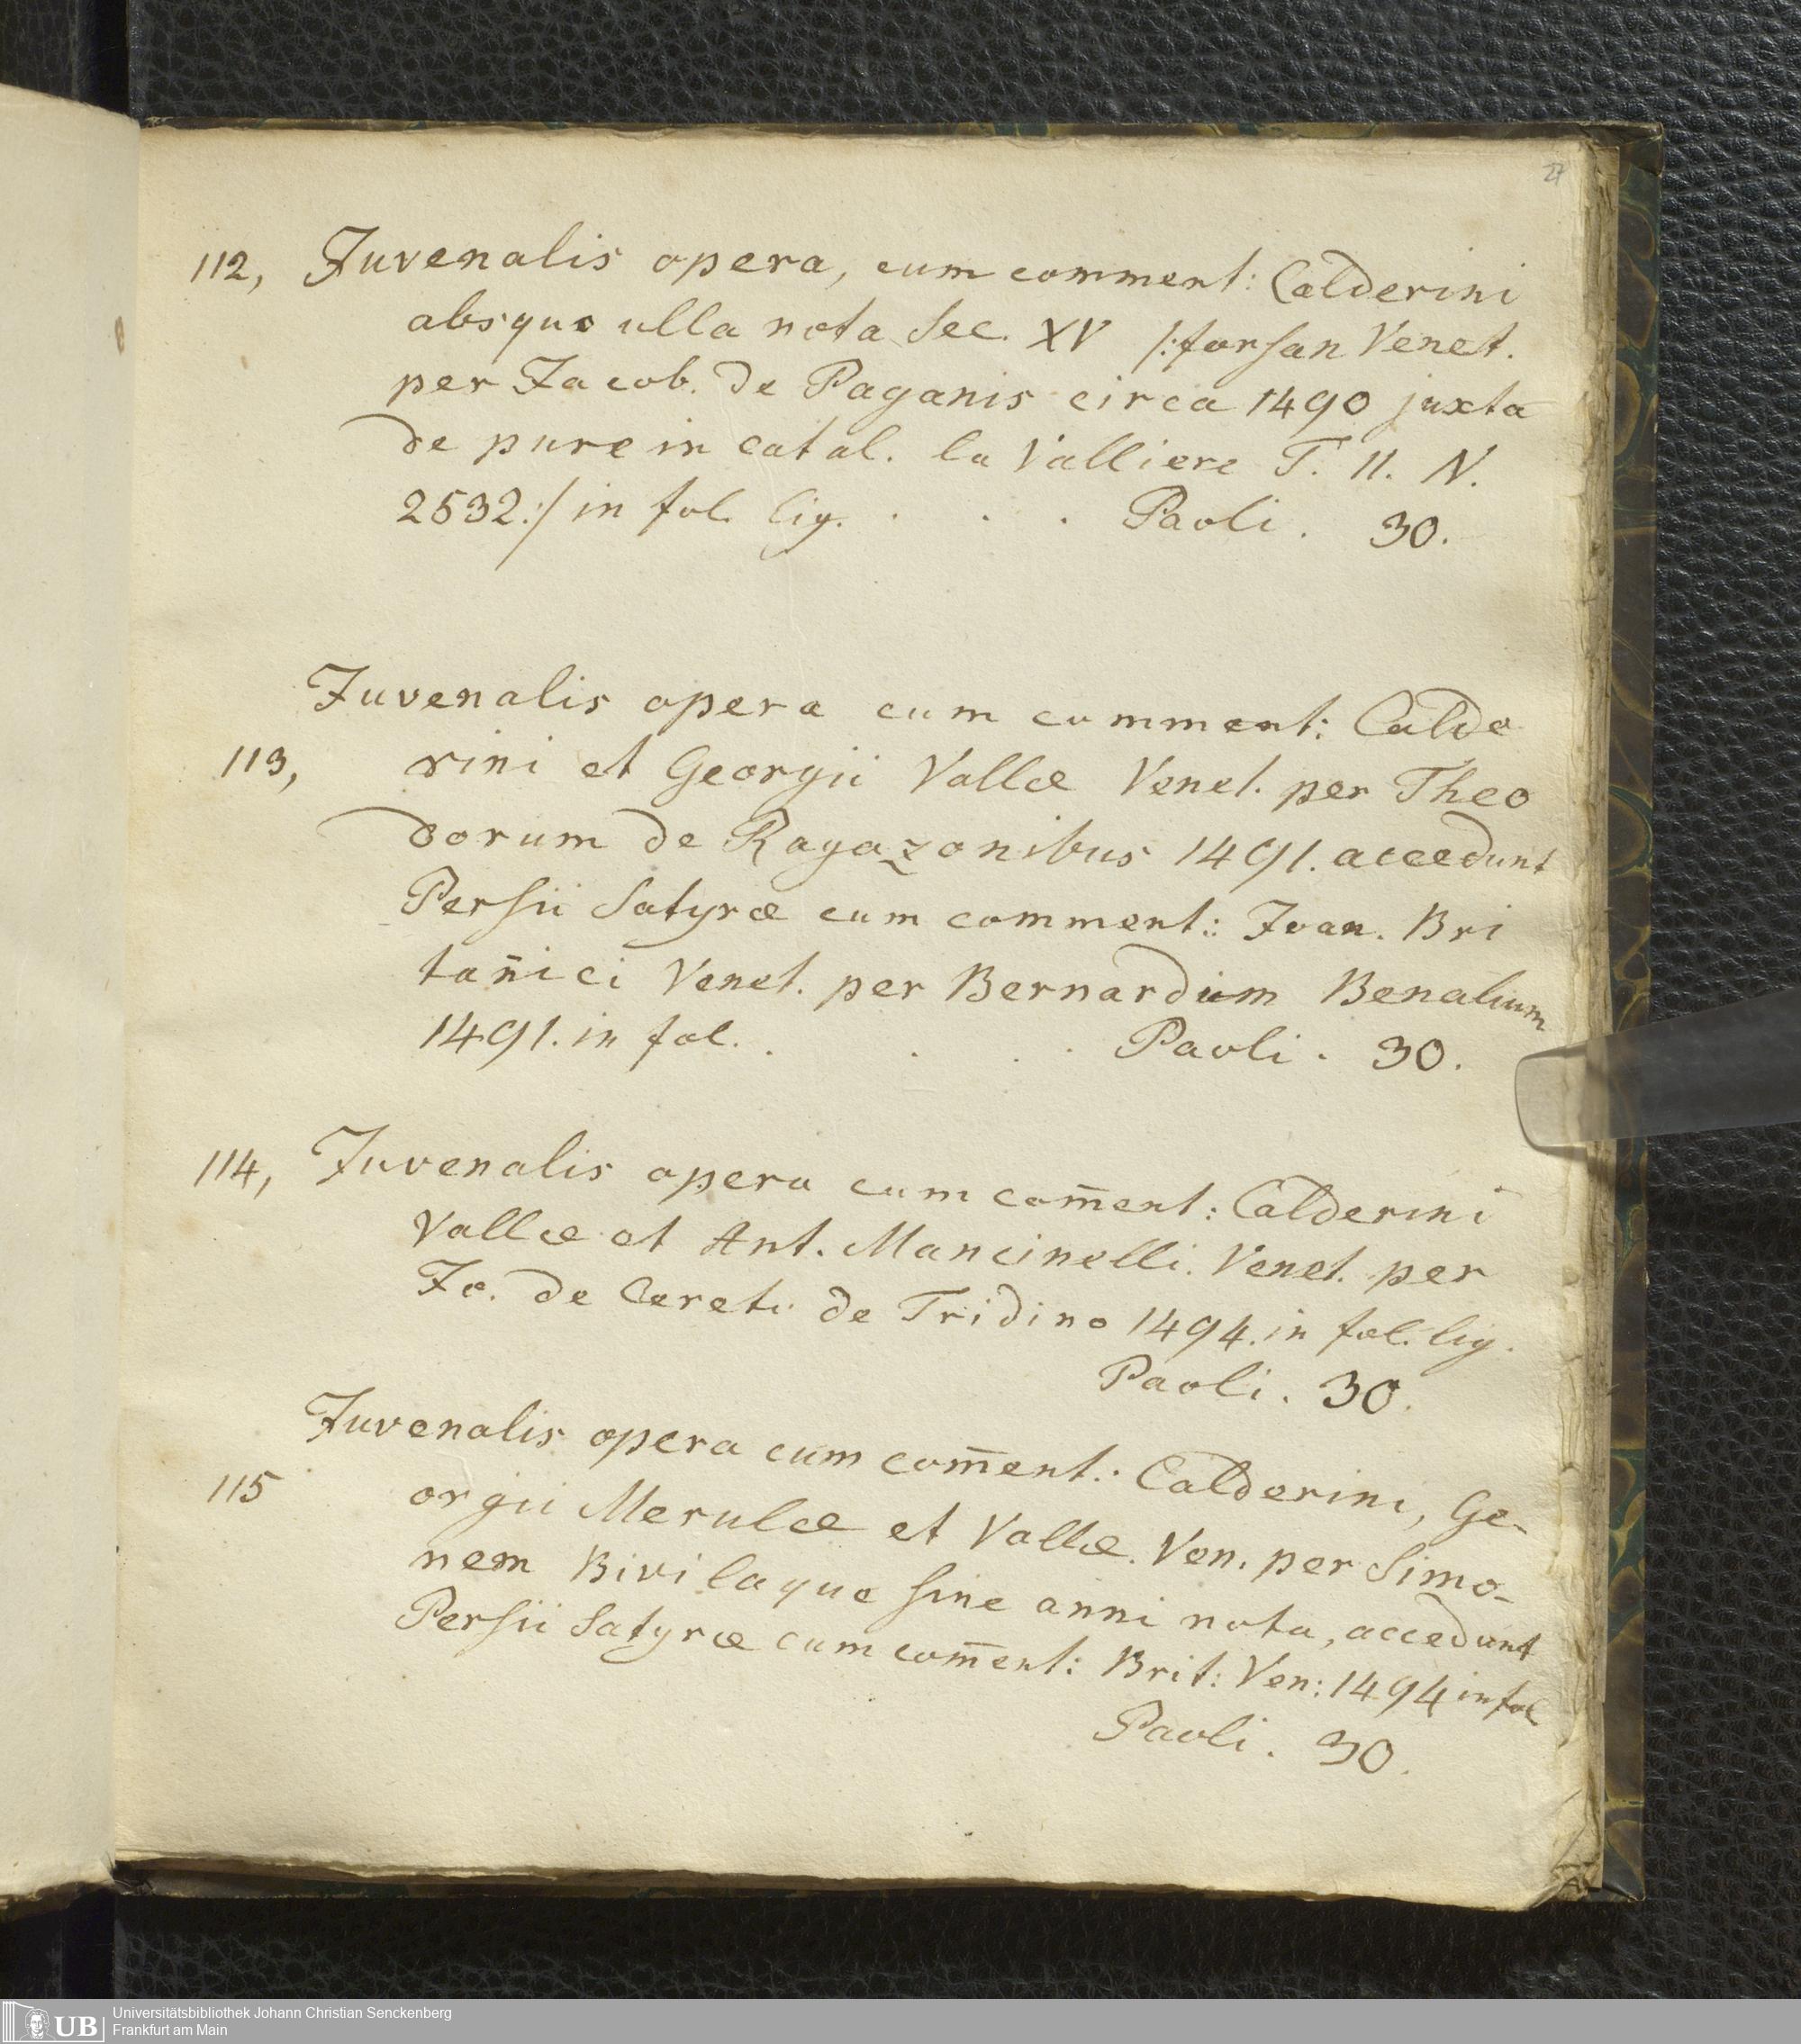 27
112, Juvenalis opera, cum comment: Calderini
absque ulla nota Sec. XV /:forsan Venet.
per Jacob. de Paganis circa 1490 juxta
de pure in Catal. la Valliere T. II. N.
2532:/ in fol. lig. . . . Paoli . 30.
Juvenalis opera cum comment: Calde
113, rini et Georgii Vallæ Venet. per Theo
dorum de Ragazonibus 1491. accedunt
Persii Satyræ cum comment: Joan. Bri
tan̄ici Venet. per Bernardum Benalium
1491. in fol. . . . . Paoli . 30.
114, Juvenalis opera cum com̄ent: Calderini
Vallæ et Ant. Mancinelli. Venet. per
Jo. de Cereto de Tridino 1494. in fol. lig.
Paoli . 30.
Juvenalis opera cum com̄ent.: Calderini, Ge-
115 orgii Merulæ et Vallæ. Ven. per Simo-
nem Bivilaque sine anni nota, accedunt
Persii Satyræ cum com̄ent: Brit: Ven: 1494 in fol
Paoli . 30.
UB
Universitätsbibliothek Johann Christian Senckenberg
Frankfurt am Main